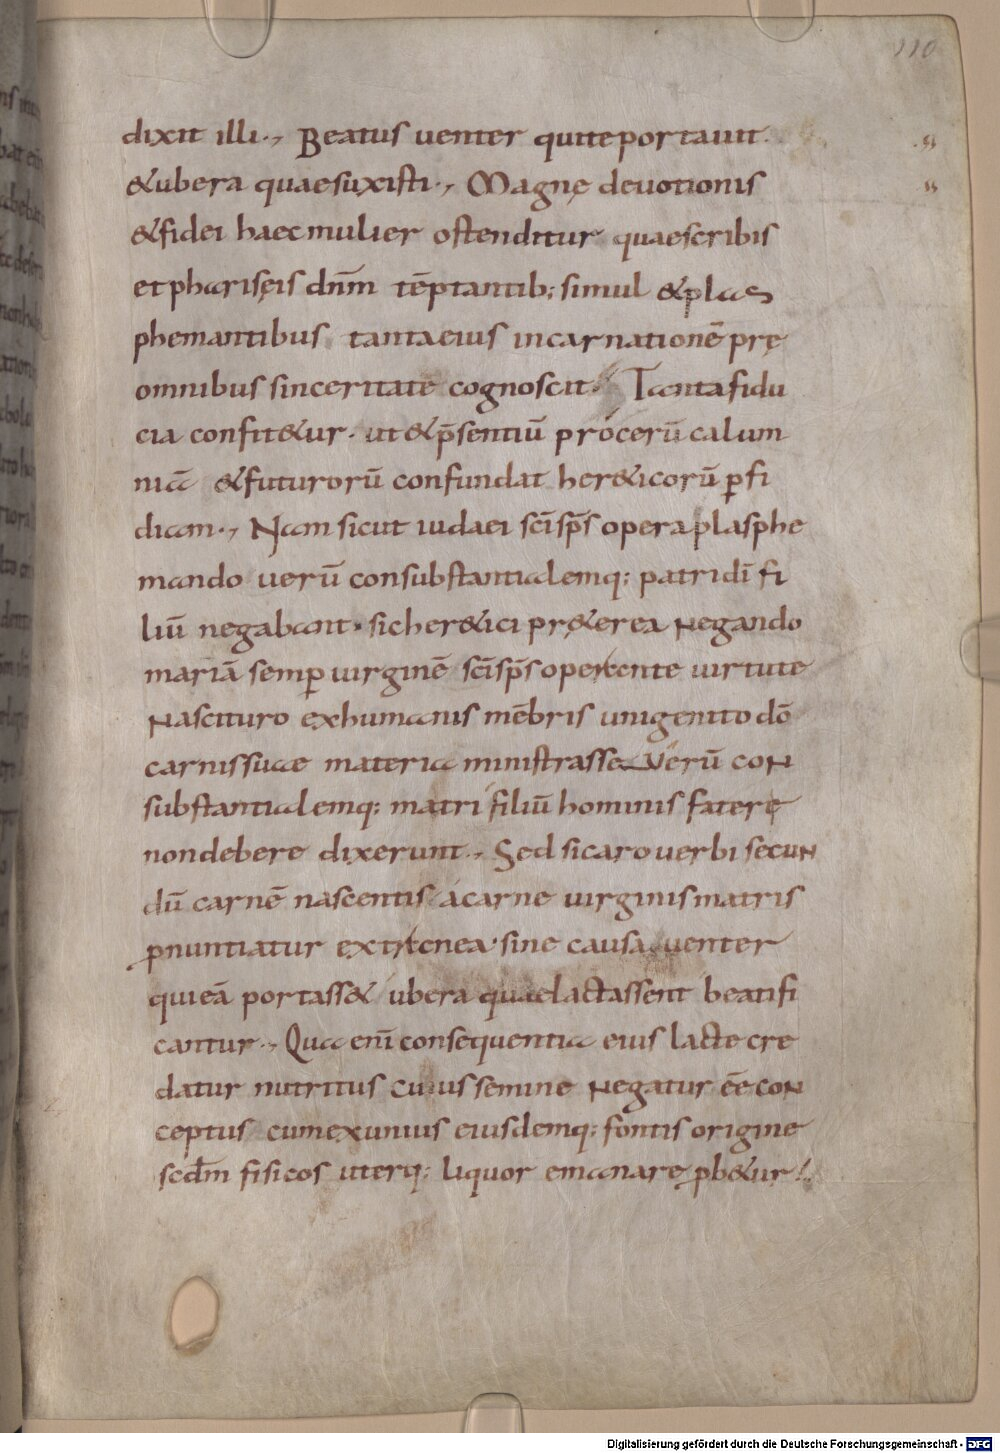 110
dixit illi., Beatus uenter quiteportauit.
&ubera quaesuxisti., Magnę deuotionis
&fidei haecmulier ostenditur quaescribis
etpharisęis dnm̄ tēptantib; simul &plas
phemantibus tantaeius incarnationē prę
omnibus sinceritate cognoscit. Tantafidu
cia confit&ur. ut&p̄sentiū procerū calum
niā &futurorū confundat her&icorū ꝑfi
diam., Nam sicut iudaei sc̄isp̄s operaplasphe
mando uerū consubstantialemq; patridī fi
liū negabant. sicher&ici pr&erea negando
mariā semꝑ uirginē sc̄isp̄s operante uirtute
Nascituro exhumanis mēbris unigenito dō
carnissuae materia ministrasse. Verū con
substantialemq; matri filiū hominis faterę
nondebere dixerunt., Sed sicarouerbi secun
dū carnē nascentis acarne uirginismatris
ꝓnuntiatur extranea. sine causa uenter
quieā portass& ubera quaelactassent beatifi
cantur., Qua enī consequentia eius lacte cre
datur nutritus cuiussemine negatur eē con
ceptus cumexunius eiusdemq; fontis origine
scdm̄ fisicos uterq; liquor emanare ꝓb&ur!
Digitalisierung gefördert durch die Deutsche Forschungsgemeinschaft - DFG